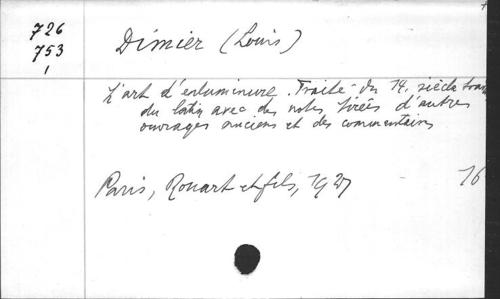 726
753
1
Dimier (Louis)
L'art d'enluminure. Traité du 14. siècle trad
du latin avec des notes tirées d'autres
ouvrages anciens et des commentaires
Paris, Rouart et fils, 1927
16